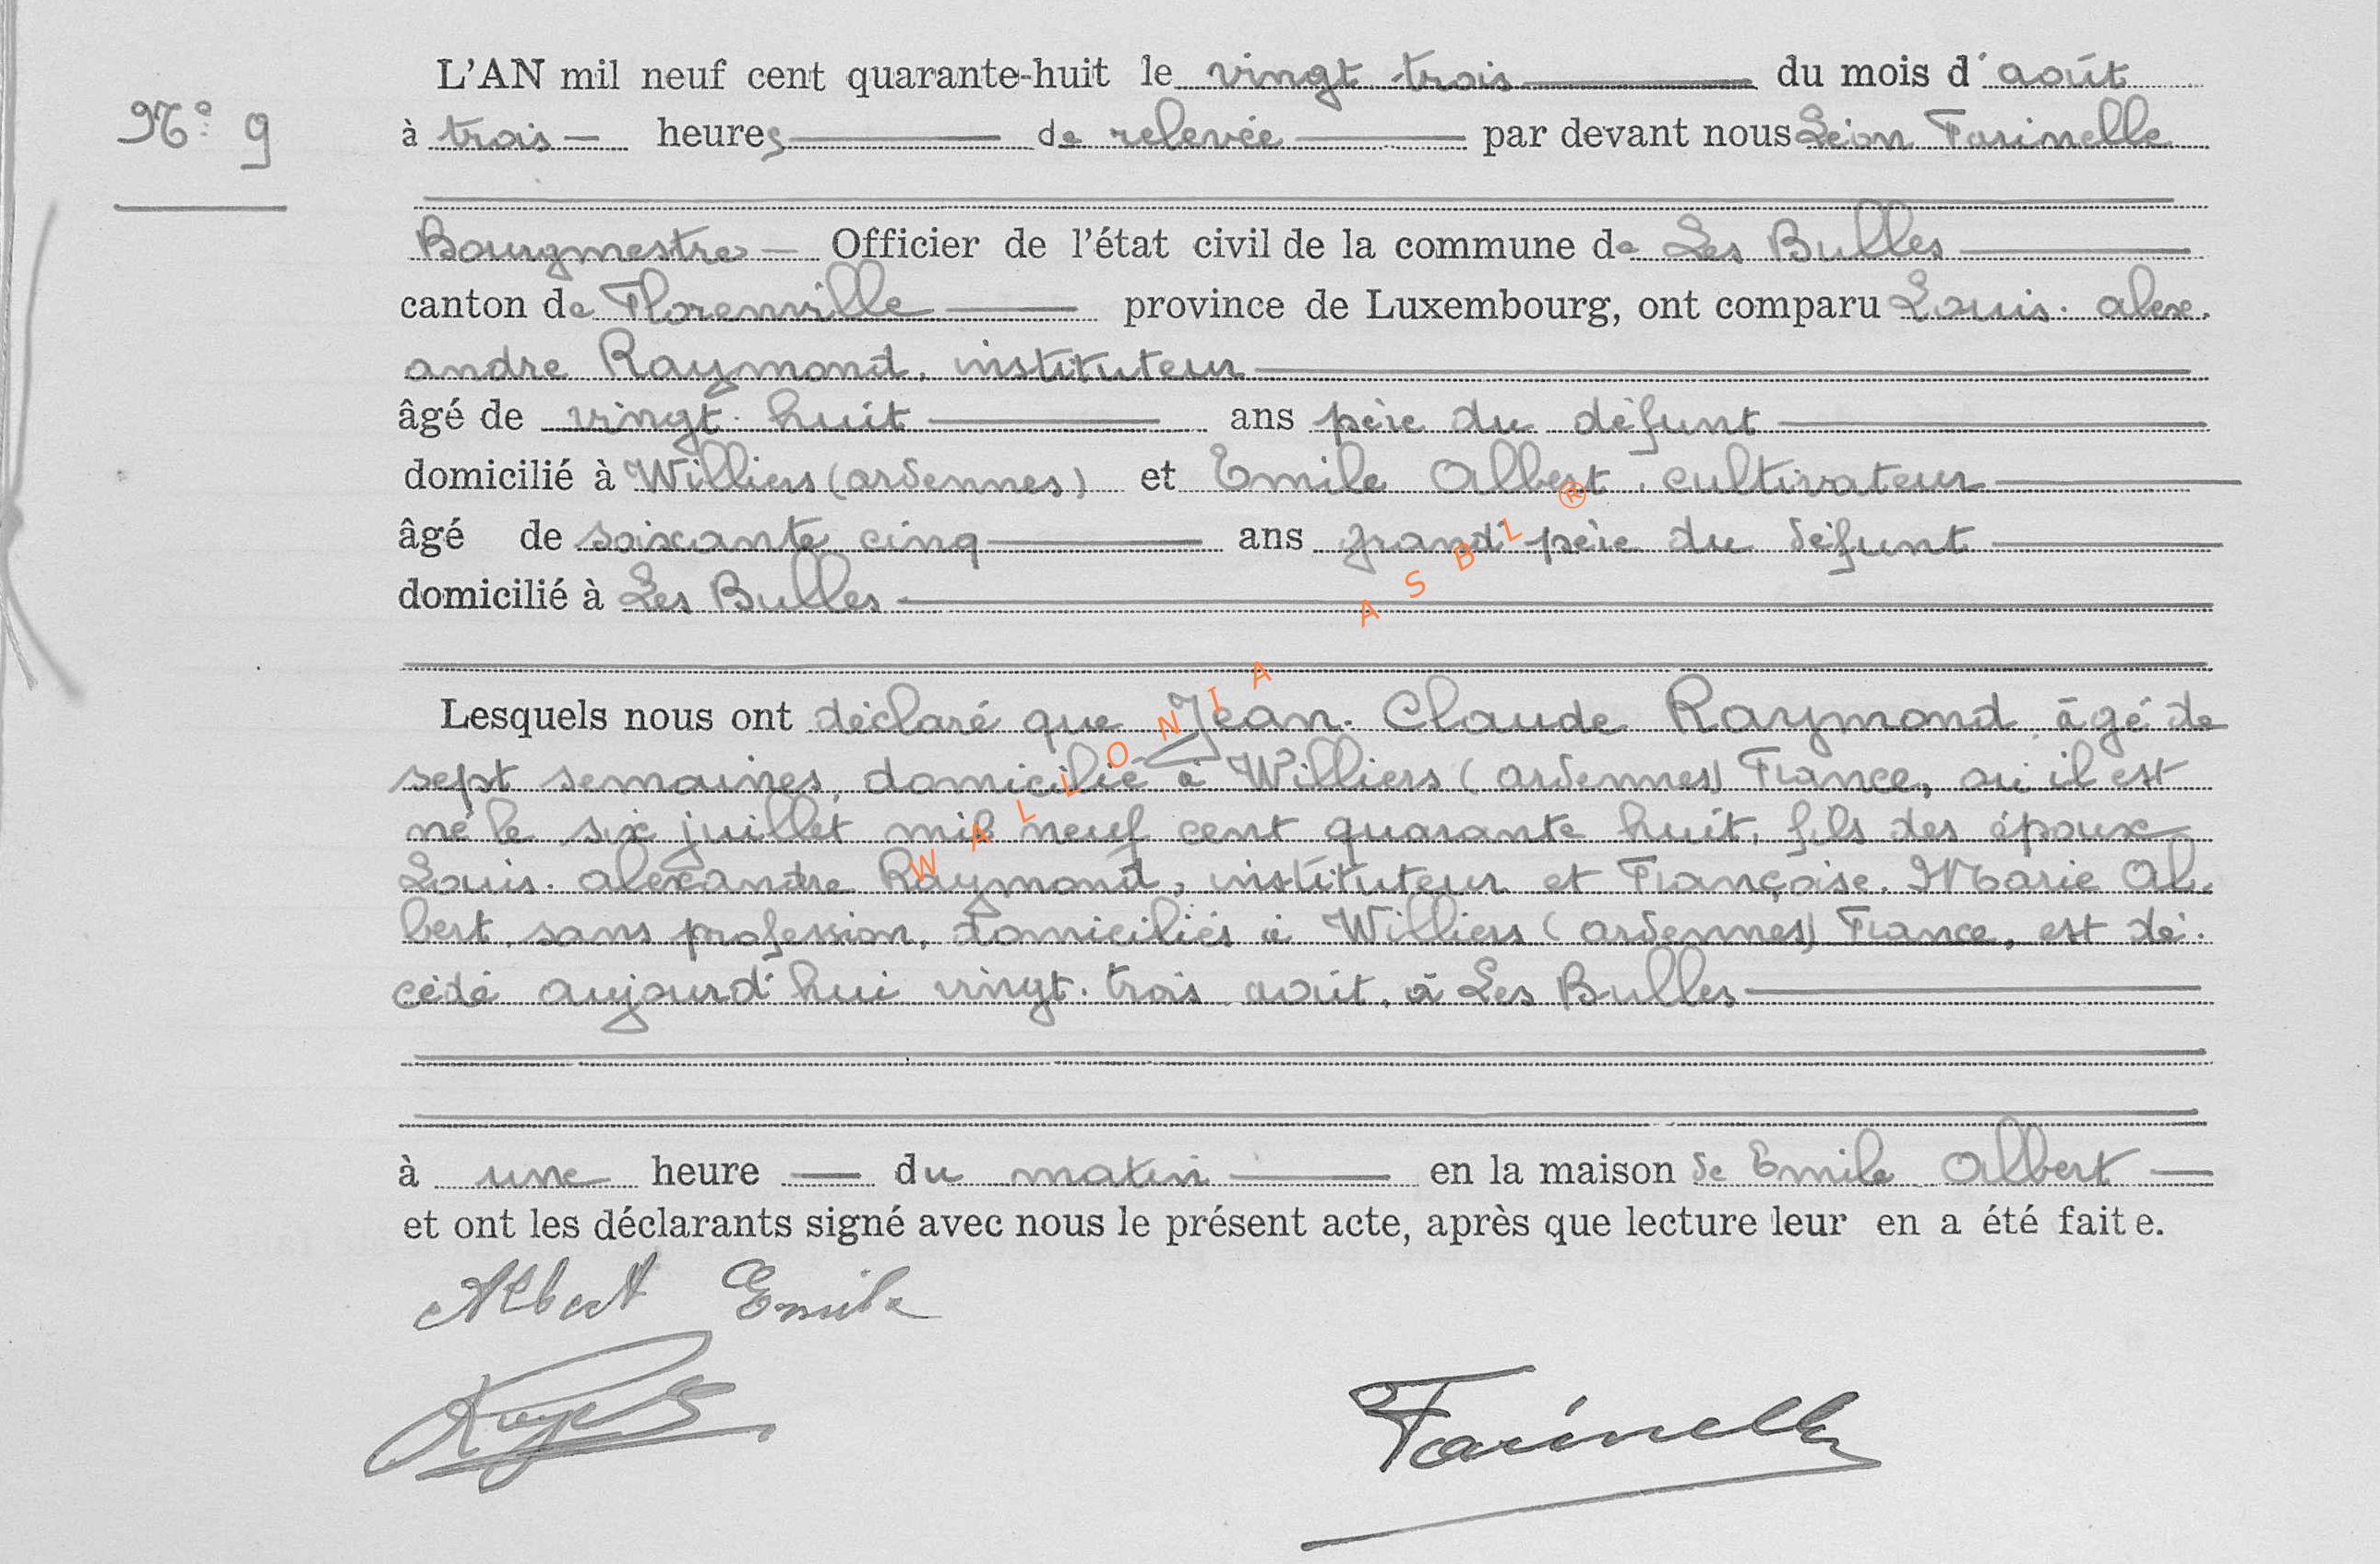 L'AN mil neuf cent quarante-huit le vingt-trois du mois d'août
N° 9
à trois heures de relevée par devant nous Léon Farinelle
Bourgmestre Officier de l'état civil de la commune de Les Bulles
canton de Florenville province de Luxembourg, ont comparu Louis-Alex-
andre Raymond, instituteur
âgé de vingt-huit ans père du défunt
domicilié à Williers (Ardennes) et Emile Albert, cultivateur
âgé de soixante cinq ans grand'père du défunt
domicilié à Les Bulles
Lesquels nous ont déclaré que Jean-Claude Raymond, âgé de
sept semaines, domicilié à Williers (Ardennes) France, où il est
né le six juillet mil neuf cent quarante huit, fils des époux
Louis-Alexandre Raymond, instituteur et Françoise-Marie Al-
bert, sans profession, domiciliés à Williers (Ardennes) France, est dé-
cédé aujourd'hui vingt-trois août, à Les Bulles
à une heure du matin en la maison de Emile Albert
et ont les déclarants signé avec nous le présent acte, après que lecture leur en a été faite.
Albert Emile
Farinelle
WALLONIA ASBL ®